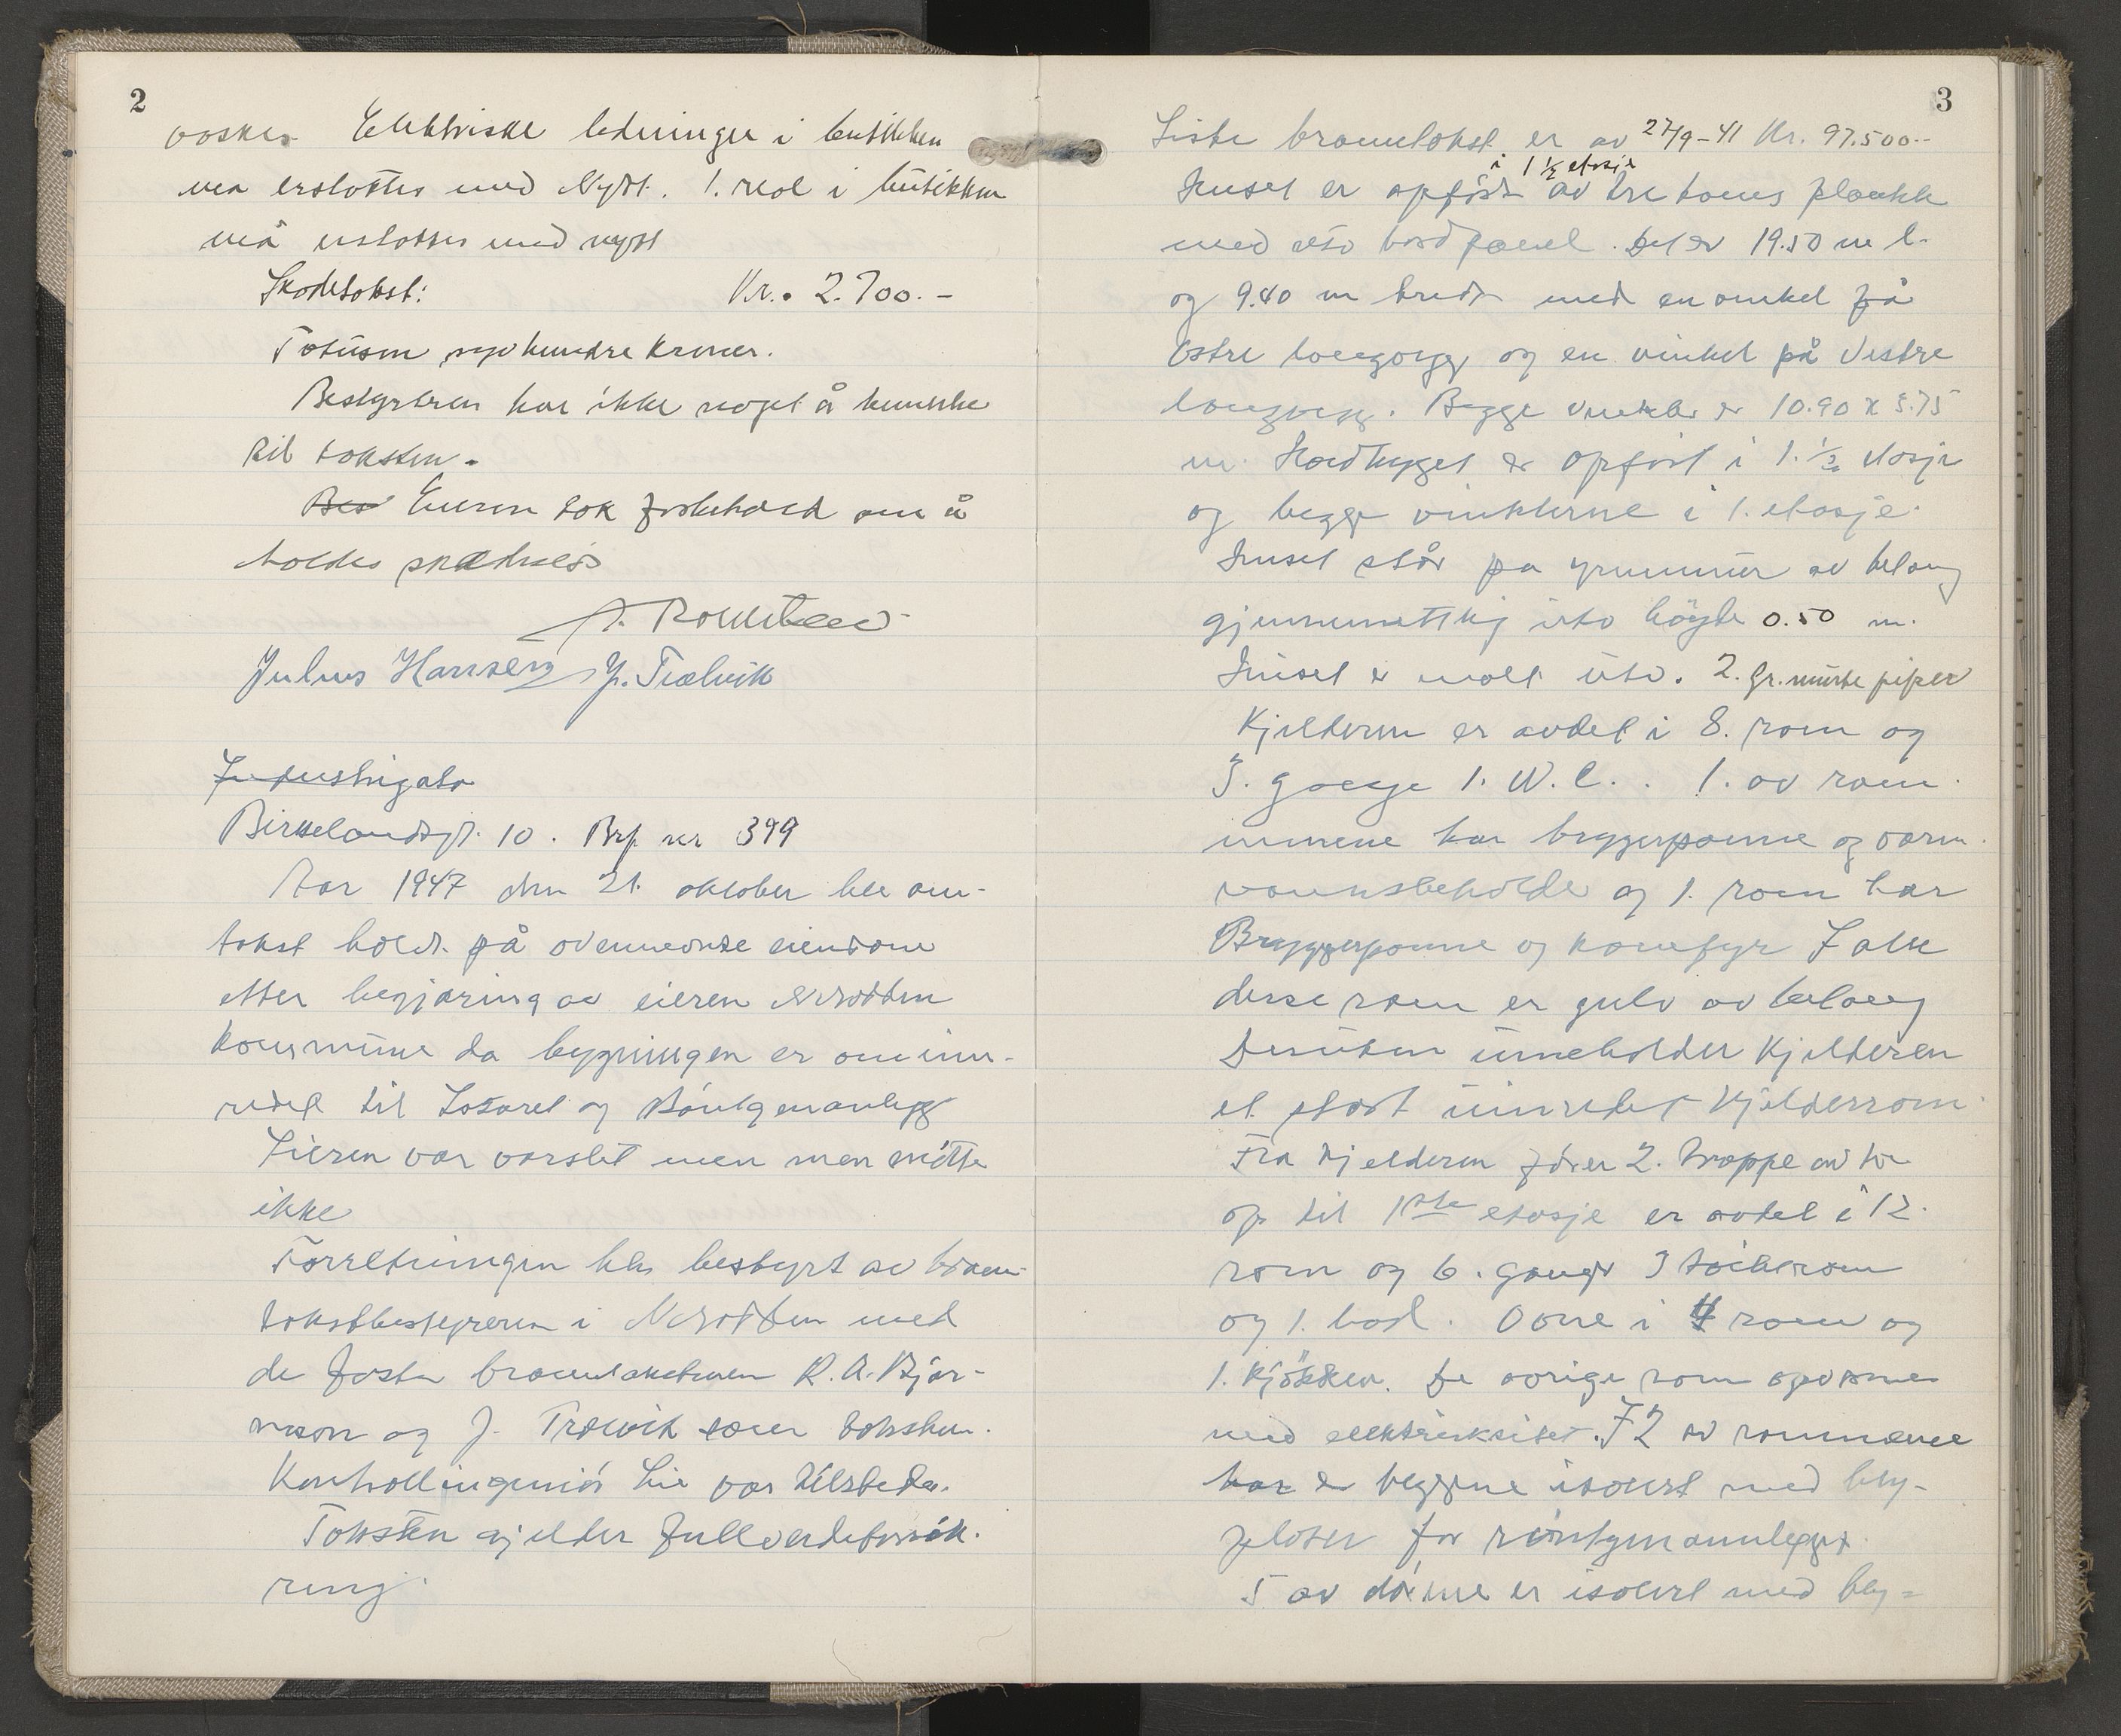 2
vaskes Elektriske ledninger i butikken
må erstattes med Nytt. 1. reol i butikken
må erstattes med nytt
Skadetakst: Kr. 2.700.-
Totusen syvhundre kroner.
Bestyreren har ikke noget å bemerke
til taksten.
Bes Eieren tok forbehold om å
holdes skadesløs
Julius Hansen J. Trælvik
Industrigata
Birkelandsgt. 10. Brf. nr 399
Aar 1947 den 21. oktober ble om-
takst holdt på ovennevnte eiendom
etter begjæring av eieren Notodden
Kommune da bygningen er ominn-
redet til Lasaret og Röntgenanlegg
Eieren var varslet men men møtte
ikke
Forretningen ble bestyrt av brann-
takstbestyreren i Notodden med
de faste brannskatsmen R. A. Bjør-
nson og J. Trælvik som takstm.
Kontrollingeniør Lie var tilstede.
Taksten gjelder fullverdiforsik-
ring.
3
Siste branntakst er av 27/9-41 Kr. 97.500.-
i 1 ½ etasje
Huset er opført av tre toms plankk
med utv bordpanel. Det er 19.50 m l.
og 9.40 m bredt med en vinkel på
østre langvegg og en vinkel på Vestre
langvegg. Begge vinkler er 10.90 x 5.75
m. Hovedbyget er opført i 1. ½ etasje
og begge vinklerne i 1. etasje.
Huset står pa grunnmur av betong
gjennemsttlig utv høyde 0.50 m.
Huset er malt utv. 2. Gr. murte piper
Kjelderen er avdelt i 8. rom og
3. gange 1. W.C. . 1. av rom
mmene har bryggerpanne og varm
vannsbeholder og 1. rom har
Bryggerpanne og komfyr I alle
disse rom er gulv av betong
Desuten inneholder Kjelderen
et stort uinredet Kjelderrom
Fra Kjelderen fører 2. trappe av tre
op til 1ste etasje er avdelt i 12.
rom og 6. ganger 3 toiletrom
og 1. bad. Ovne i 4 rom og
1. kjøkken. De øvrige rom opvarmes
med elektrisksitet. I 2 av rommene
har er veggene isolert med bly-
plater for röntgenannlegget
5 av dørene er isolert med bly=